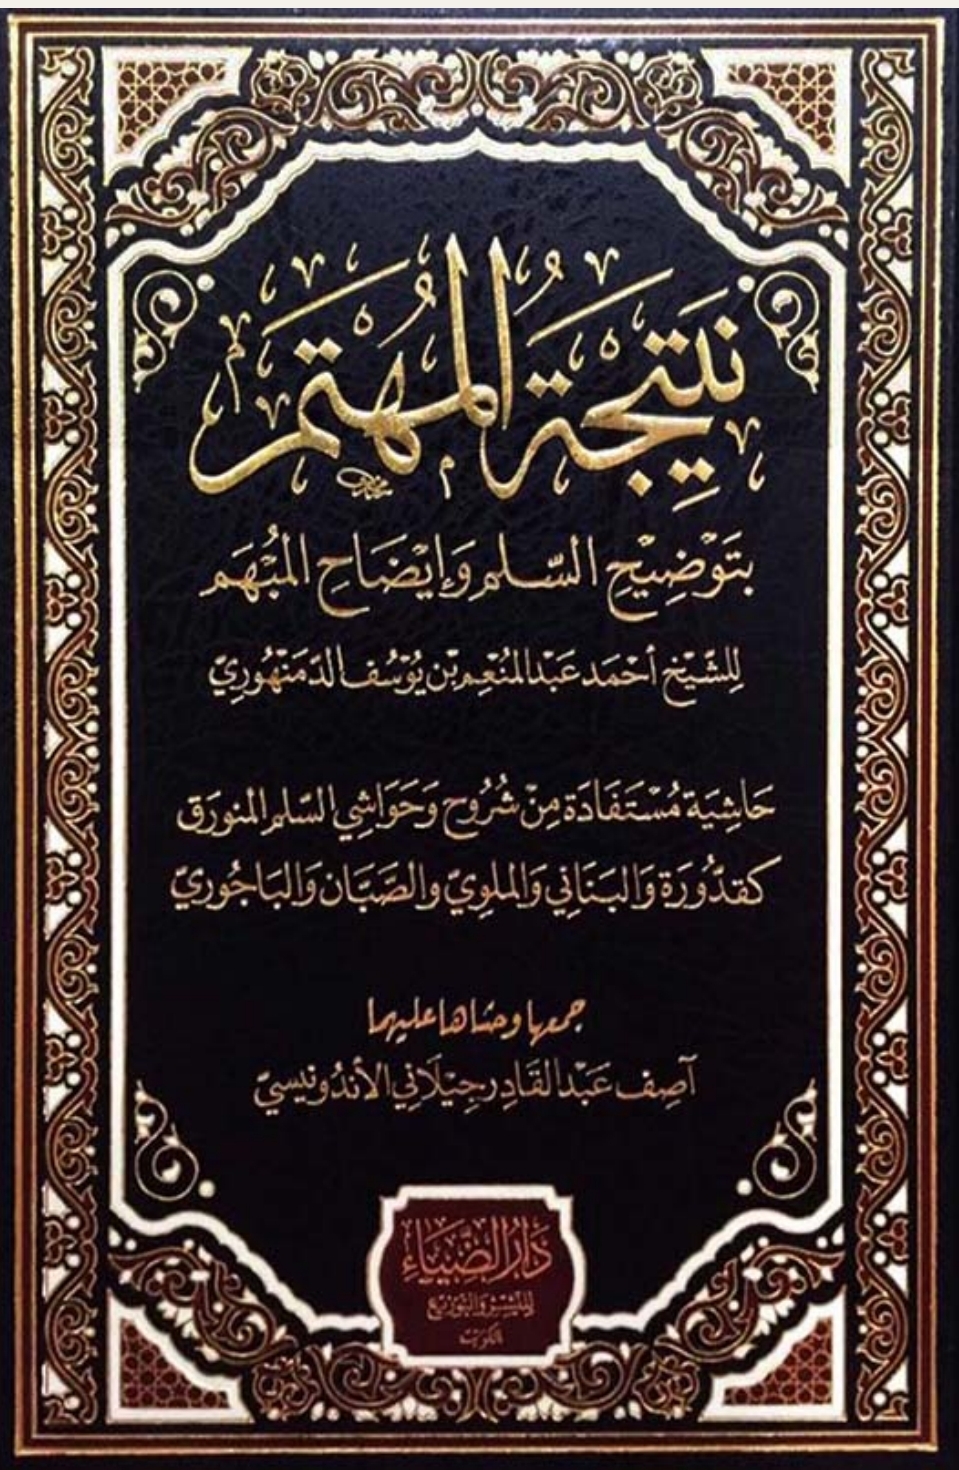 نَتِيْجَةُ الْمُهْتَمِّ
بِتَوْضِيْحِ السّلم وَإيْضَاحِ المُبْهَم
لِلشَّيْخ أحْمَد عَبْد المُنْعِم بْن يُوْسُف الدّمَنْهُورِيّ
حَاشِيَة مُسْتَفَادَة مِنْ شُرُوْح وَحَوَاشِي السّلم المنورَق
كَقدُّورَة وَالبَنَانِي وَالملوِيّ والصَّبَّان وَالبَاجُوريّ
جمعها وحشاها عليهما
آصِف عَبْد القَادِر جِيْلَانِي الأنْدُونِيسِيّ
دَارُ الضِّيَاءِ
لِلنَّشْرِ وَالتَّوْزِيْعِ
الكويت